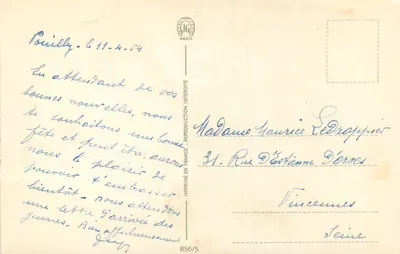 Pouilly, le 11-4-59
En attendant de vos
bonnes nouvelles, nous
te souhaitons une bonne
fête et peut être, aurons
nous le plaisir de
pouvoir t'embrasser
bientôt. nous attendons
une lettre d'arrivée des
jeunes. Bien affectueusement
PARIS
IMPRIMÉ EN FRANCE - REPRODUCTION INTERDITE
856/5
Madame Maurice LeDrappier
31, Rue D'Estienne D'orves
Vincennes
Seine